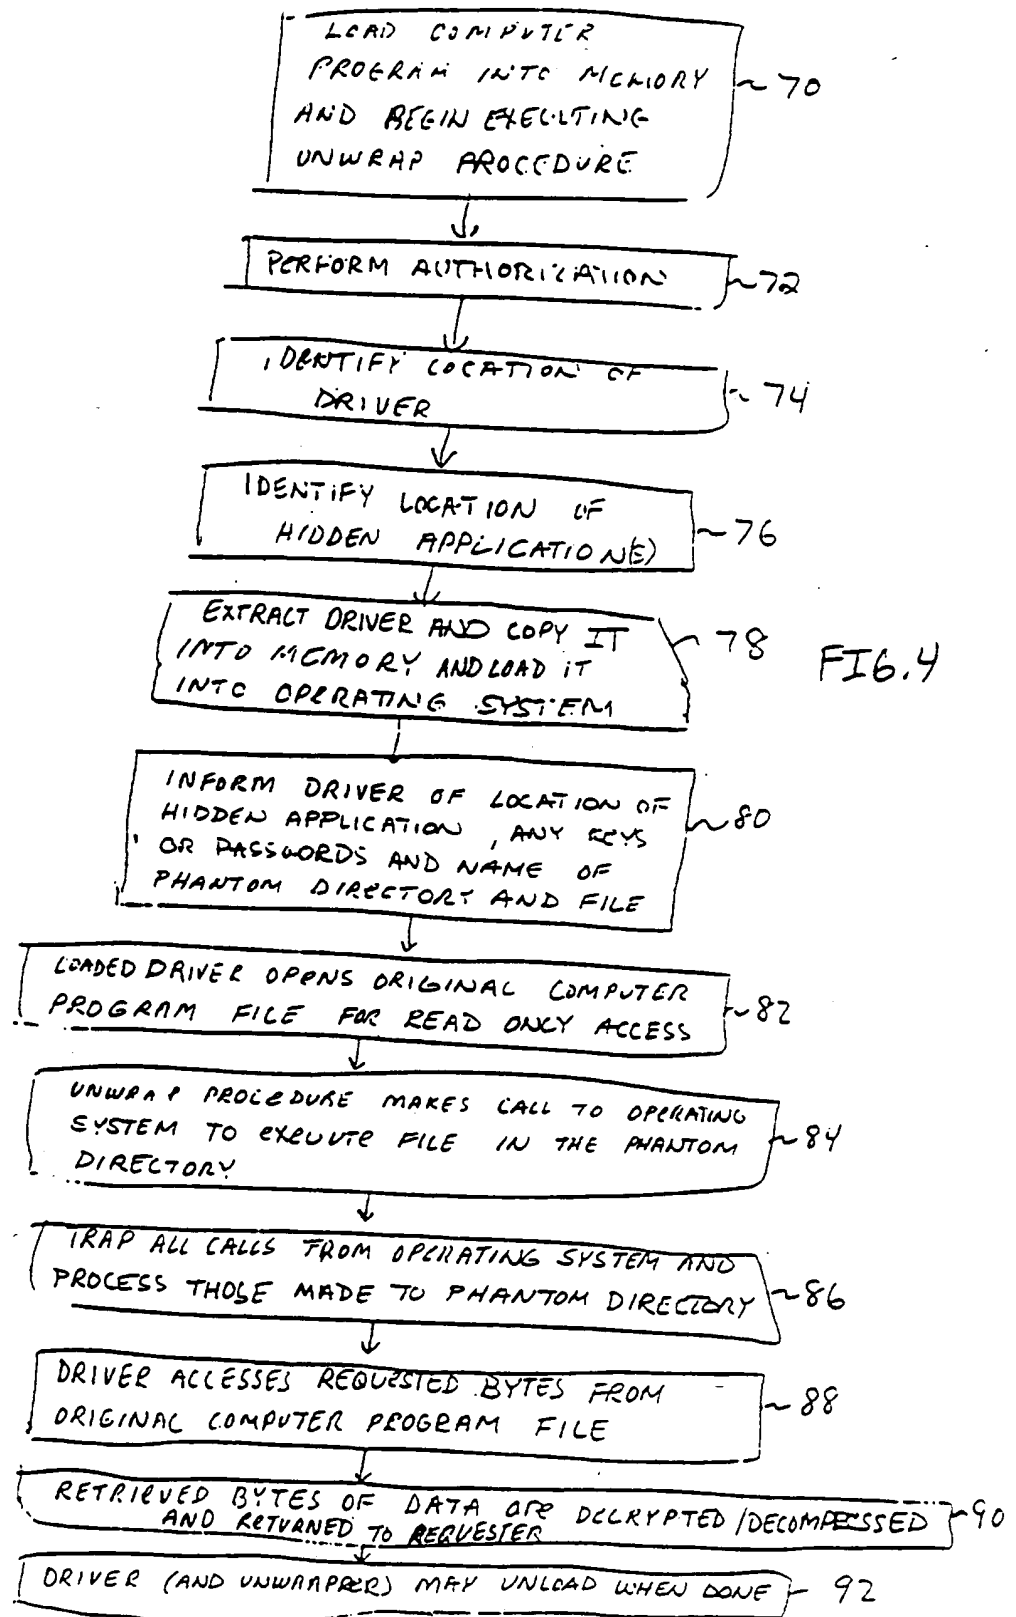 LOAD COMPUTER
PROGRAM INTO MEMORY
AND BEGIN EXECUTING
UNWRAP PROCEDURE
~70
PERFORM AUTHORIZATION
~72
IDENTIFY LOCATION OF
DRIVER
~74
IDENTIFY LOCATION OF
HIDDEN APPLICATION(S)
~76
EXTRACT DRIVER AND COPY IT
INTO MEMORY AND LOAD IT
INTO OPERATING SYSTEM
~78
FIG.4
INFORM DRIVER OF LOCATION OF
HIDDEN APPLICATION, ANY KEYS
OR PASSWORDS AND NAME OF
PHANTOM DIRECTORY AND FILE
~80
LOADED DRIVER OPENS ORIGINAL COMPUTER
PROGRAM FILE FOR READ ONLY ACCESS
~82
UNWRAP PROCEDURE MAKES CALL TO OPERATING
SYSTEM TO EXECUTE FILE IN THE PHANTOM
DIRECTORY
~84
TRAP ALL CALLS FROM OPERATING SYSTEM AND
PROCESS THOSE MADE TO PHANTOM DIRECTORY
~86
DRIVER ACCESSES REQUESTED BYTES FROM
ORIGINAL COMPUTER PROGRAM FILE
~88
RETRIEVED BYTES OF DATA ARE DECRYPTED/DECOMPRESSED
AND RETURNED TO REQUESTER
~90
DRIVER (AND UNWRAPPER) MAY UNLOAD WHEN DONE
92